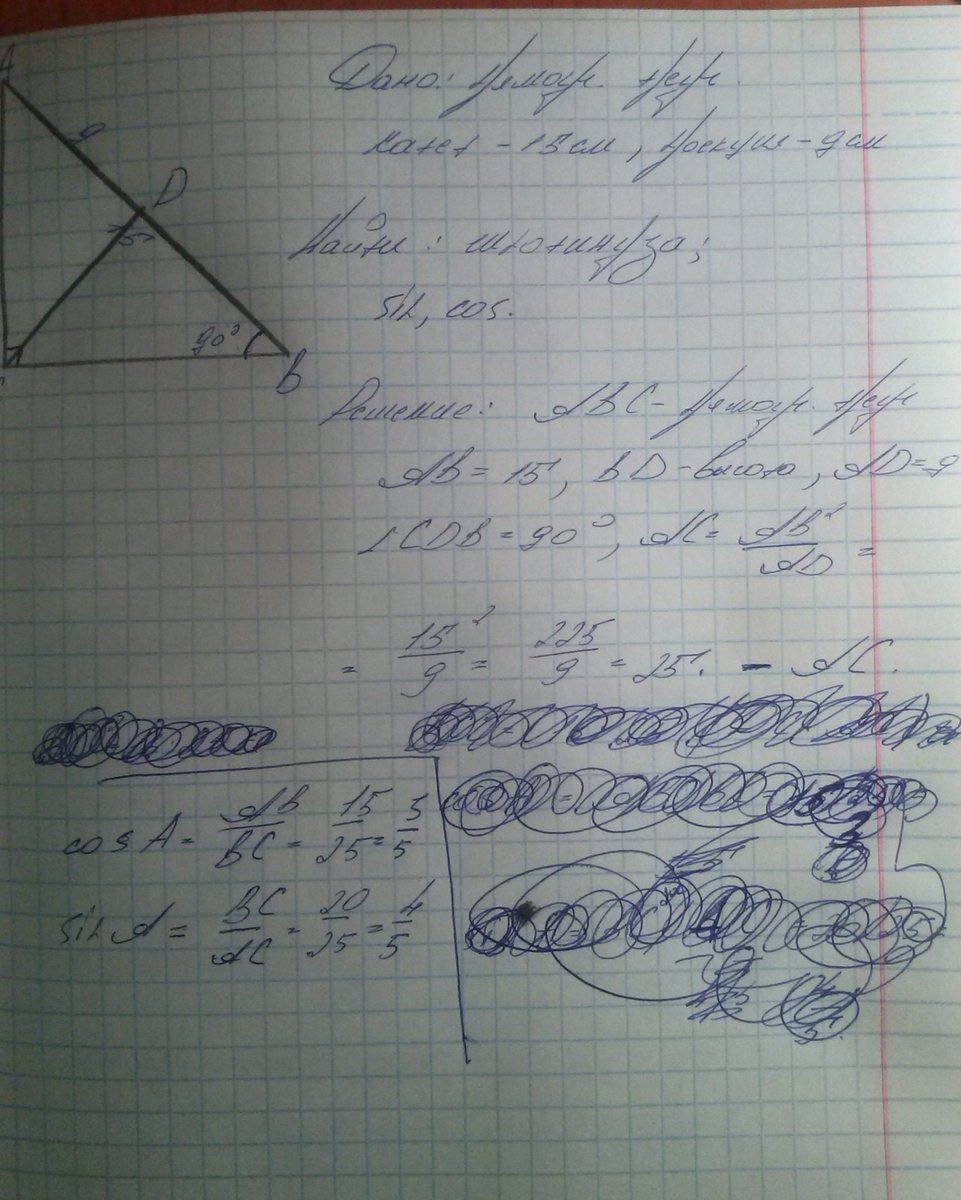 A
9
D
15
90°
B
Дано: Прямоуг. треуг.
катет - 15 см, Проекция - 9 см
Найти: гипотинуза;
sin, cos.
Решение: ABC - Прямоуг. треуг
AB = 15, BD - высота, AD = 9
∠CDB = 90°, AC = AB²/AD =
= 15²/9 = 225/9 = 25. - AC.
cos A = AB/BC = 15/25 = 3/5
sin A = BC/AC = 20/25 = 4/5